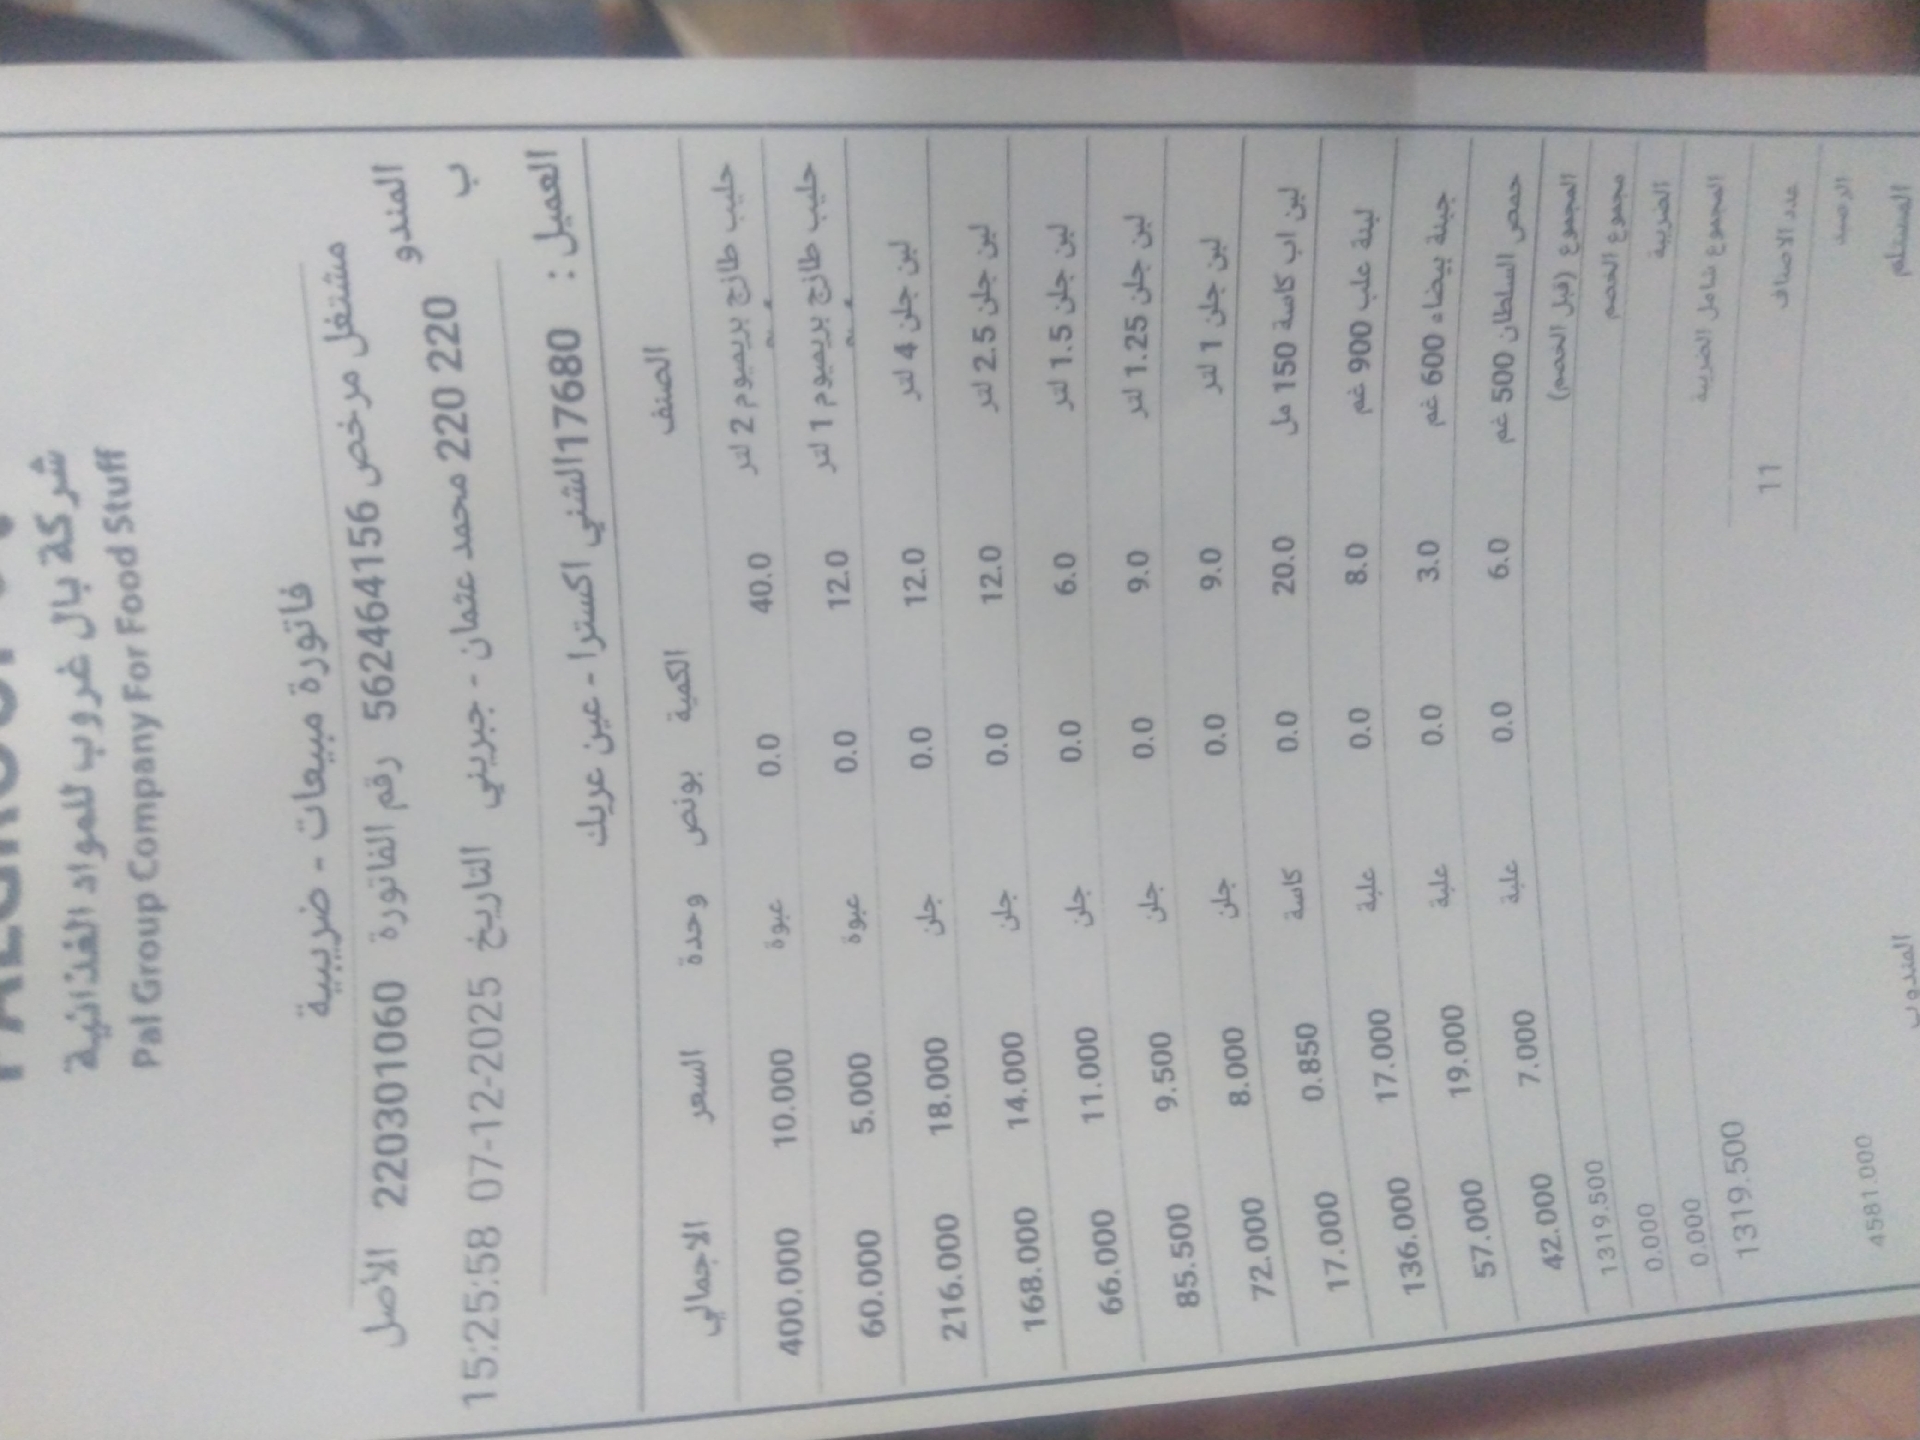 شركة بال غروب للمواد الغذائية
Pal Group Company For Food Stuff
فاتورة مبيعات - ضريبية
مشتغل مرخص 562464156 رقم الفاتورة 220301060 الأصل
المندو ب 220 220 محمد عثمان - جبريني التاريخ 07-12-2025 15:25:58
العميل : 17680الشني اكسترا - عين عريك
الصنف الكمية بونص وحدة السعر الاجمالي
حليب طازج بريميوم 2 لتر 40.0 0.0 عبوة 10.000 400.000
حليب طازج بريميوم 1 لتر 12.0 0.0 عبوة 5.000 60.000
لبن جلن 4 لتر 12.0 0.0 جلن 18.000 216.000
لبن جلن 2.5 لتر 12.0 0.0 جلن 14.000 168.000
لبن جلن 1.5 لتر 6.0 0.0 جلن 11.000 66.000
لبن جلن 1.25 لتر 9.0 0.0 جلن 9.500 85.500
لبن جلن 1 لتر 9.0 0.0 جلن 8.000 72.000
لبن اب كاسة 150 مل 20.0 0.0 كاسة 0.850 17.000
لبنة علب 900 غم 8.0 0.0 علبة 17.000 136.000
جبنة بيضاء 600 غم 3.0 0.0 علبة 19.000 57.000
حمص السلطان 500 غم 6.0 0.0 علبة 7.000 42.000
المجموع (قبل الخصم) 1319.500
مجموع الخصم 0.000
الضريبة 0.000
المجموع شامل الضريبة 1319.500
عدد الاصناف 11
الرصيد 4581.000
المستلم المندوب